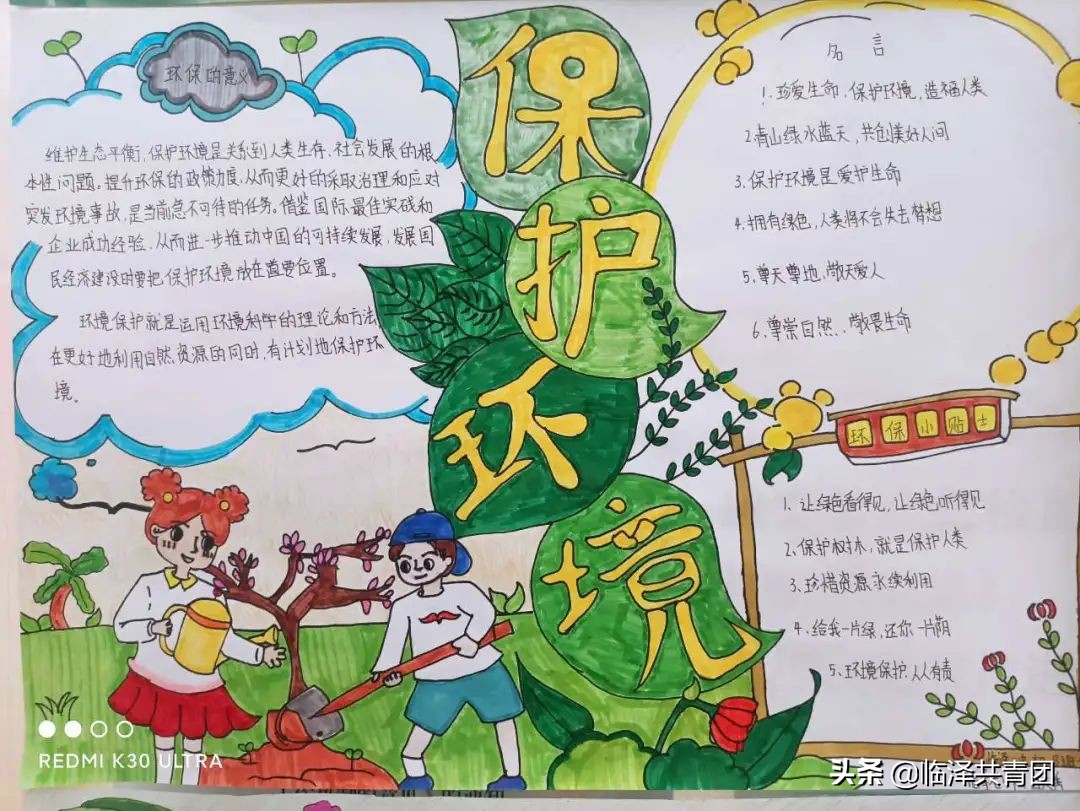 环保的意义
维护生态平衡,保护环境是关系到人类生存、社会发展的根
本性问题。提升环保的政策力度,从而更好的采取治理和应对
突发环境事故,是当前急不可待的任务。借鉴国际最佳实践和
企业成功经验,从而进一步推动中国的可持续发展,发展国
民经济建设时要把保护环境放在首要位置。
环境保护就是运用环境科学的理论和方法,
在更好地利用自然资源的同时,有计划地保护环
境。
保
护
环
境
名言
1.珍爱生命、保护环境,造福人类
2.青山绿水蓝天,共创美好人间
3.保护环境是爱护生命
4.拥有绿色,人类将不会失去梦想
5.尊天尊地,敬天爱人
6.尊崇自然、敬畏生命
环保小贴士
1.让绿色看得见,让绿色听得见
2.保护树木,就是保护人类
3.珍惜资源永续利用
4.给我一片绿,还你一片荫
5.环境保护.人人有责
REDMI K30 ULTRA
头条 @临泽共青团